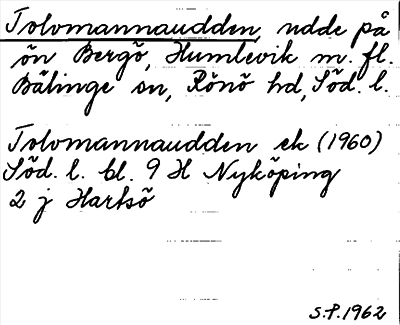 Tolvmannaudden, udde på
ön Bergö, Humlevik m. fl.
Bälinge sn, Rönö hd, Söd. l.
Tolvmannaudden ek (1960)
Söd. l. bl. 9 H Nyköping
2 j Hartsö
S.P. 1962